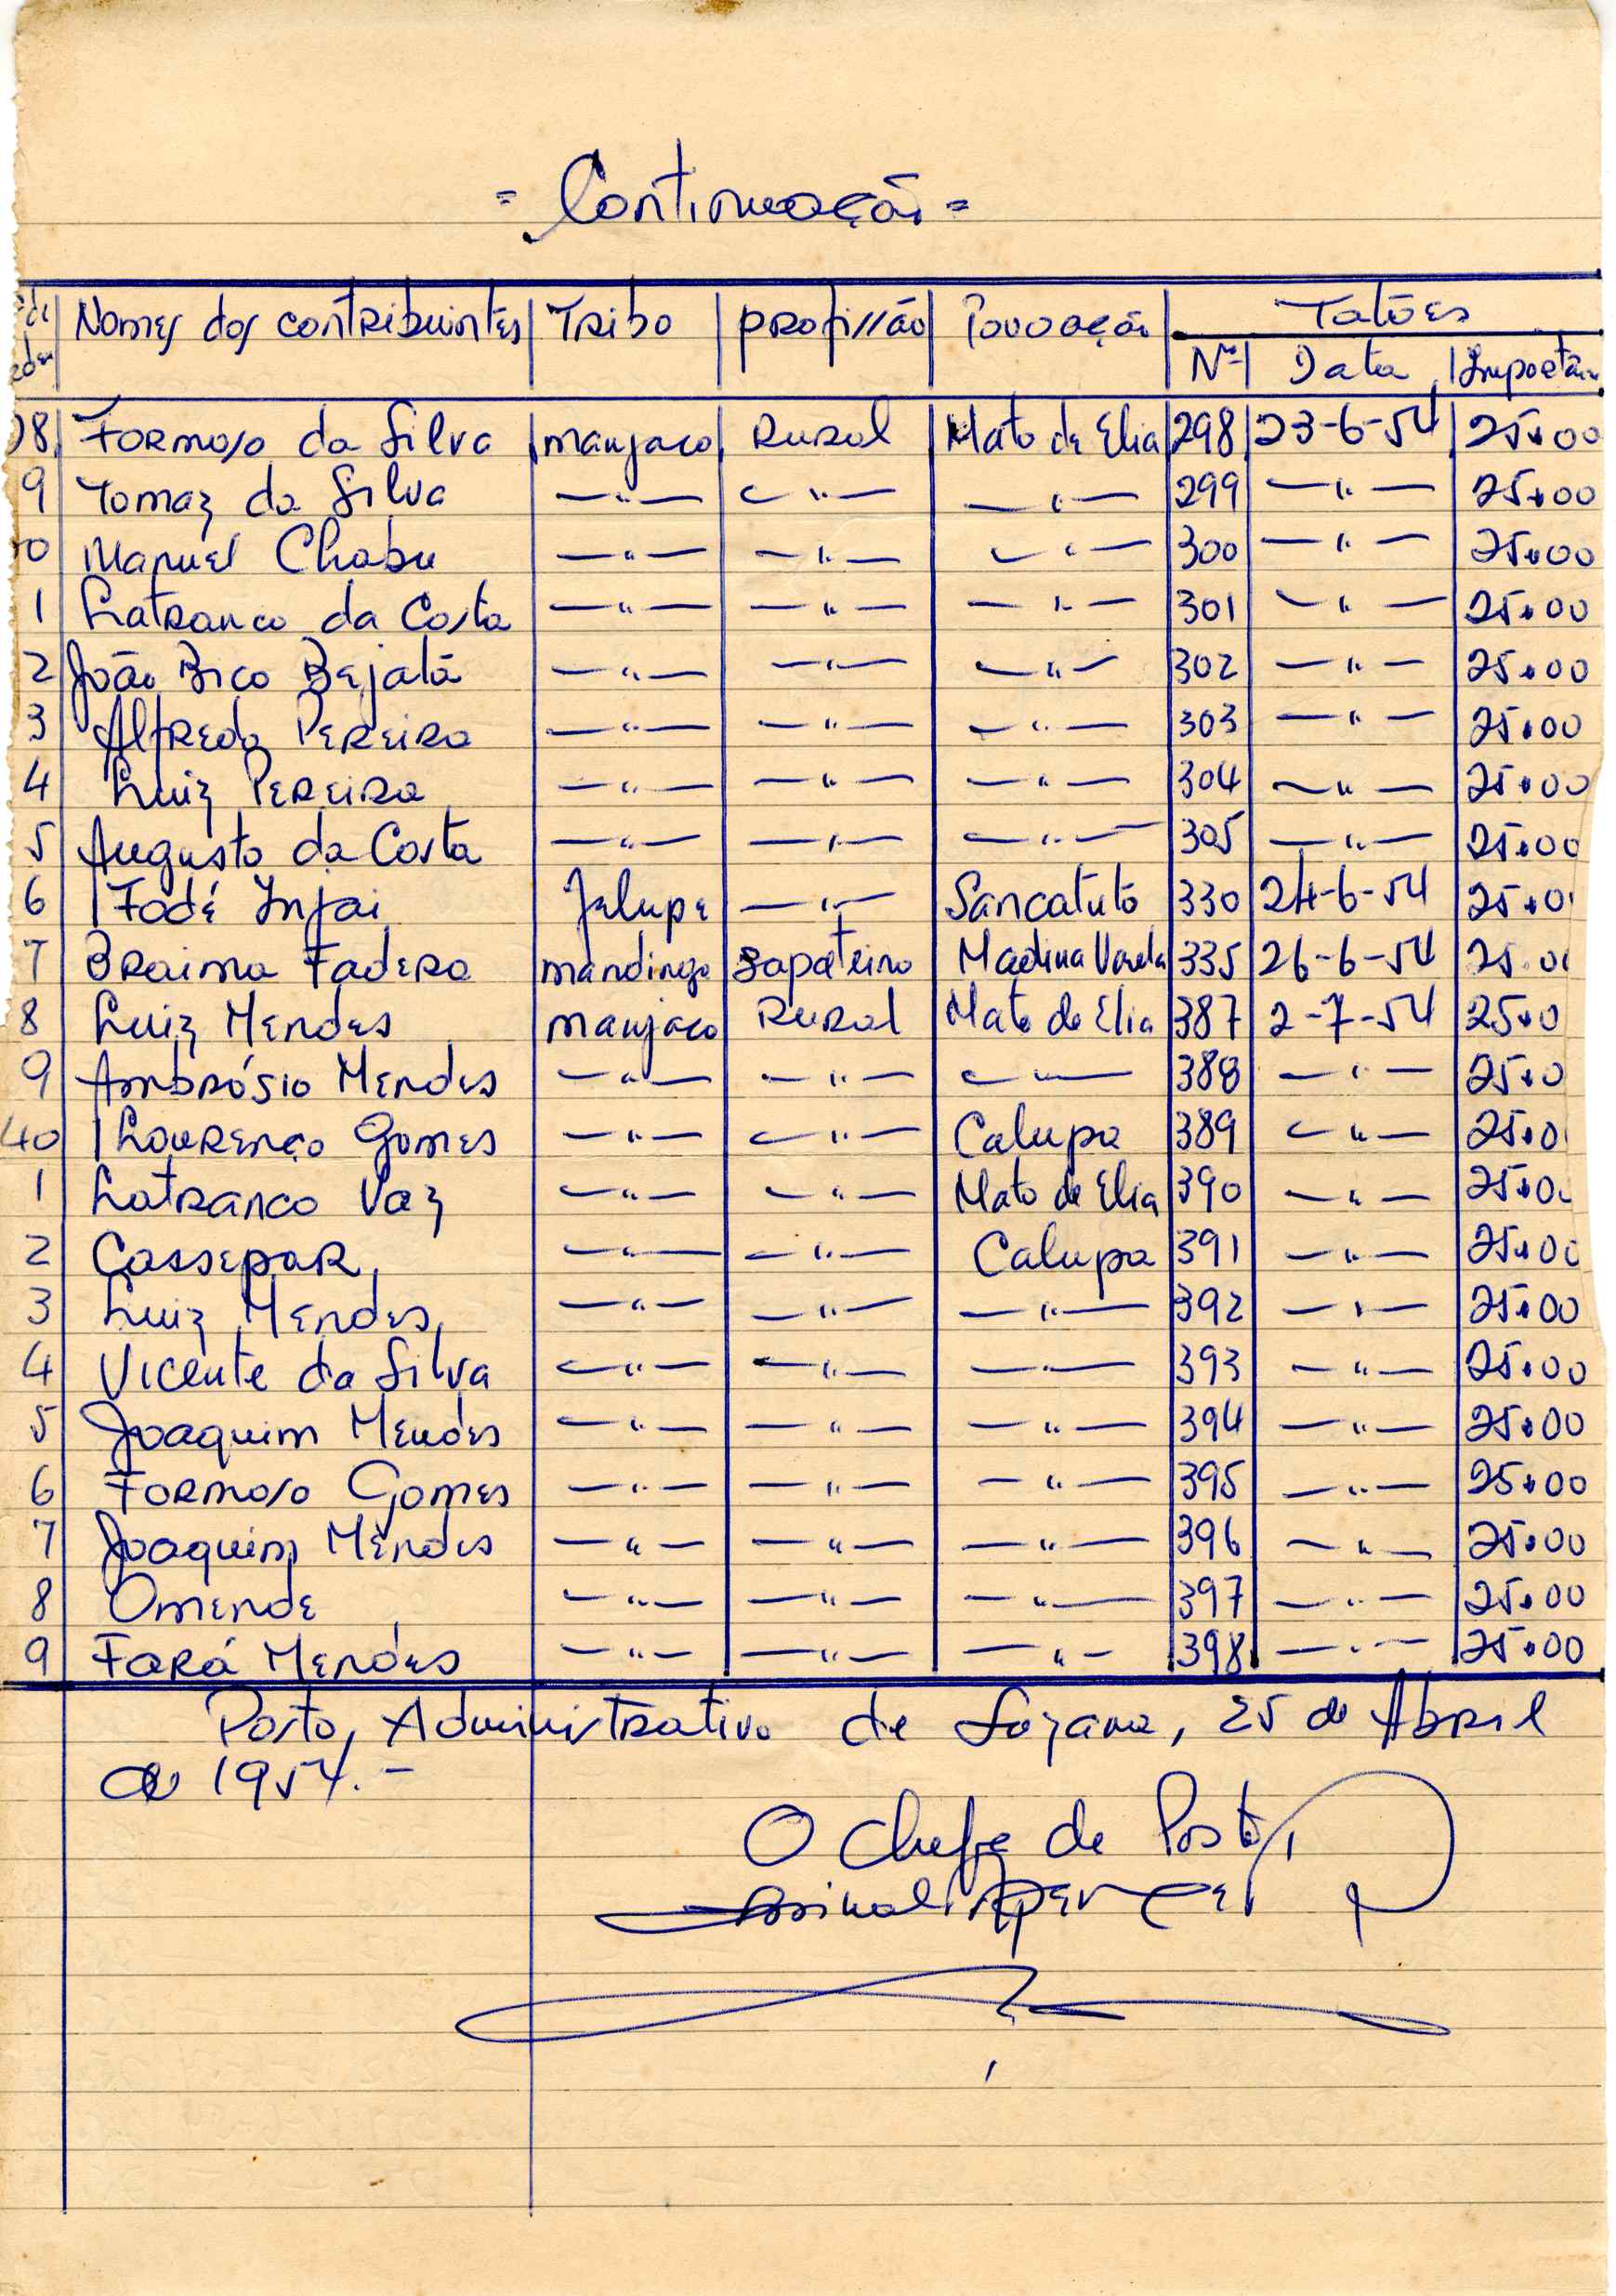 = Continuação =
Nomes dos contribuintes Tribo profissão Povoação Talões
Nº Data
8 Formoso da Silva manjaco Rural Mato de Elia 298 23-6-54 25$00
9 Tomaz da Silva —"— —"— —"— 299 —"— 25$00
0 Manuel Chabu —"— —"— —"— 300 —"— 25$00
1 Latranco da Costa —"— —"— —"— 301 —"— 25$00
2 João Bico Bejatã —"— —"— —"— 302 —"— 25$00
3 Alfredo Pereira —"— —"— —"— 303 —"— 25$00
4 Luiz Pereira —"— —"— —"— 304 —"— 25$00
5 Augusto da Costa —"— —"— —"— 305 —"— 25$00
6 Fodé Injai Jelupe —"— Sancatuto 330 24-6-54 25$0
7 Braima Fadera mandinga sapateiro Madina Varela 335 26-6-54 25$0
8 Luiz Mendes manjaco Rural Mato de Elia 387 2-7-54 25$0
9 Ambrósio Mendes —"— —"— —"— 388 —"— 25$0
40 Lourenço Gomes —"— —"— Calupa 389 —"— 25$0
1 Latranco Vaz —"— —"— Mato de Elia 390 —"— 25$0
2 Cassepar —"— —"— Calupa 391 —"— 25$00
3 Luiz Mendes —"— —"— —"— 392 —"— 25$00
4 Vicente da Silva —"— —"— —"— 393 —"— 25$00
5 Joaquim Mendes —"— —"— —"— 394 —"— 25$00
6 Formoso Gomes —"— —"— —"— 395 —"— 25$00
7 Joaquim Mendes —"— —"— —"— 396 —"— 25$00
8 Omende —"— —"— —"— 397 —"— 25$00
9 Fará Mendes —"— —"— —"— 398 —"— 25$00
Posto Administrativo de Suzana, 25 de Abril
de 1954.-
O Chefe de Posto,